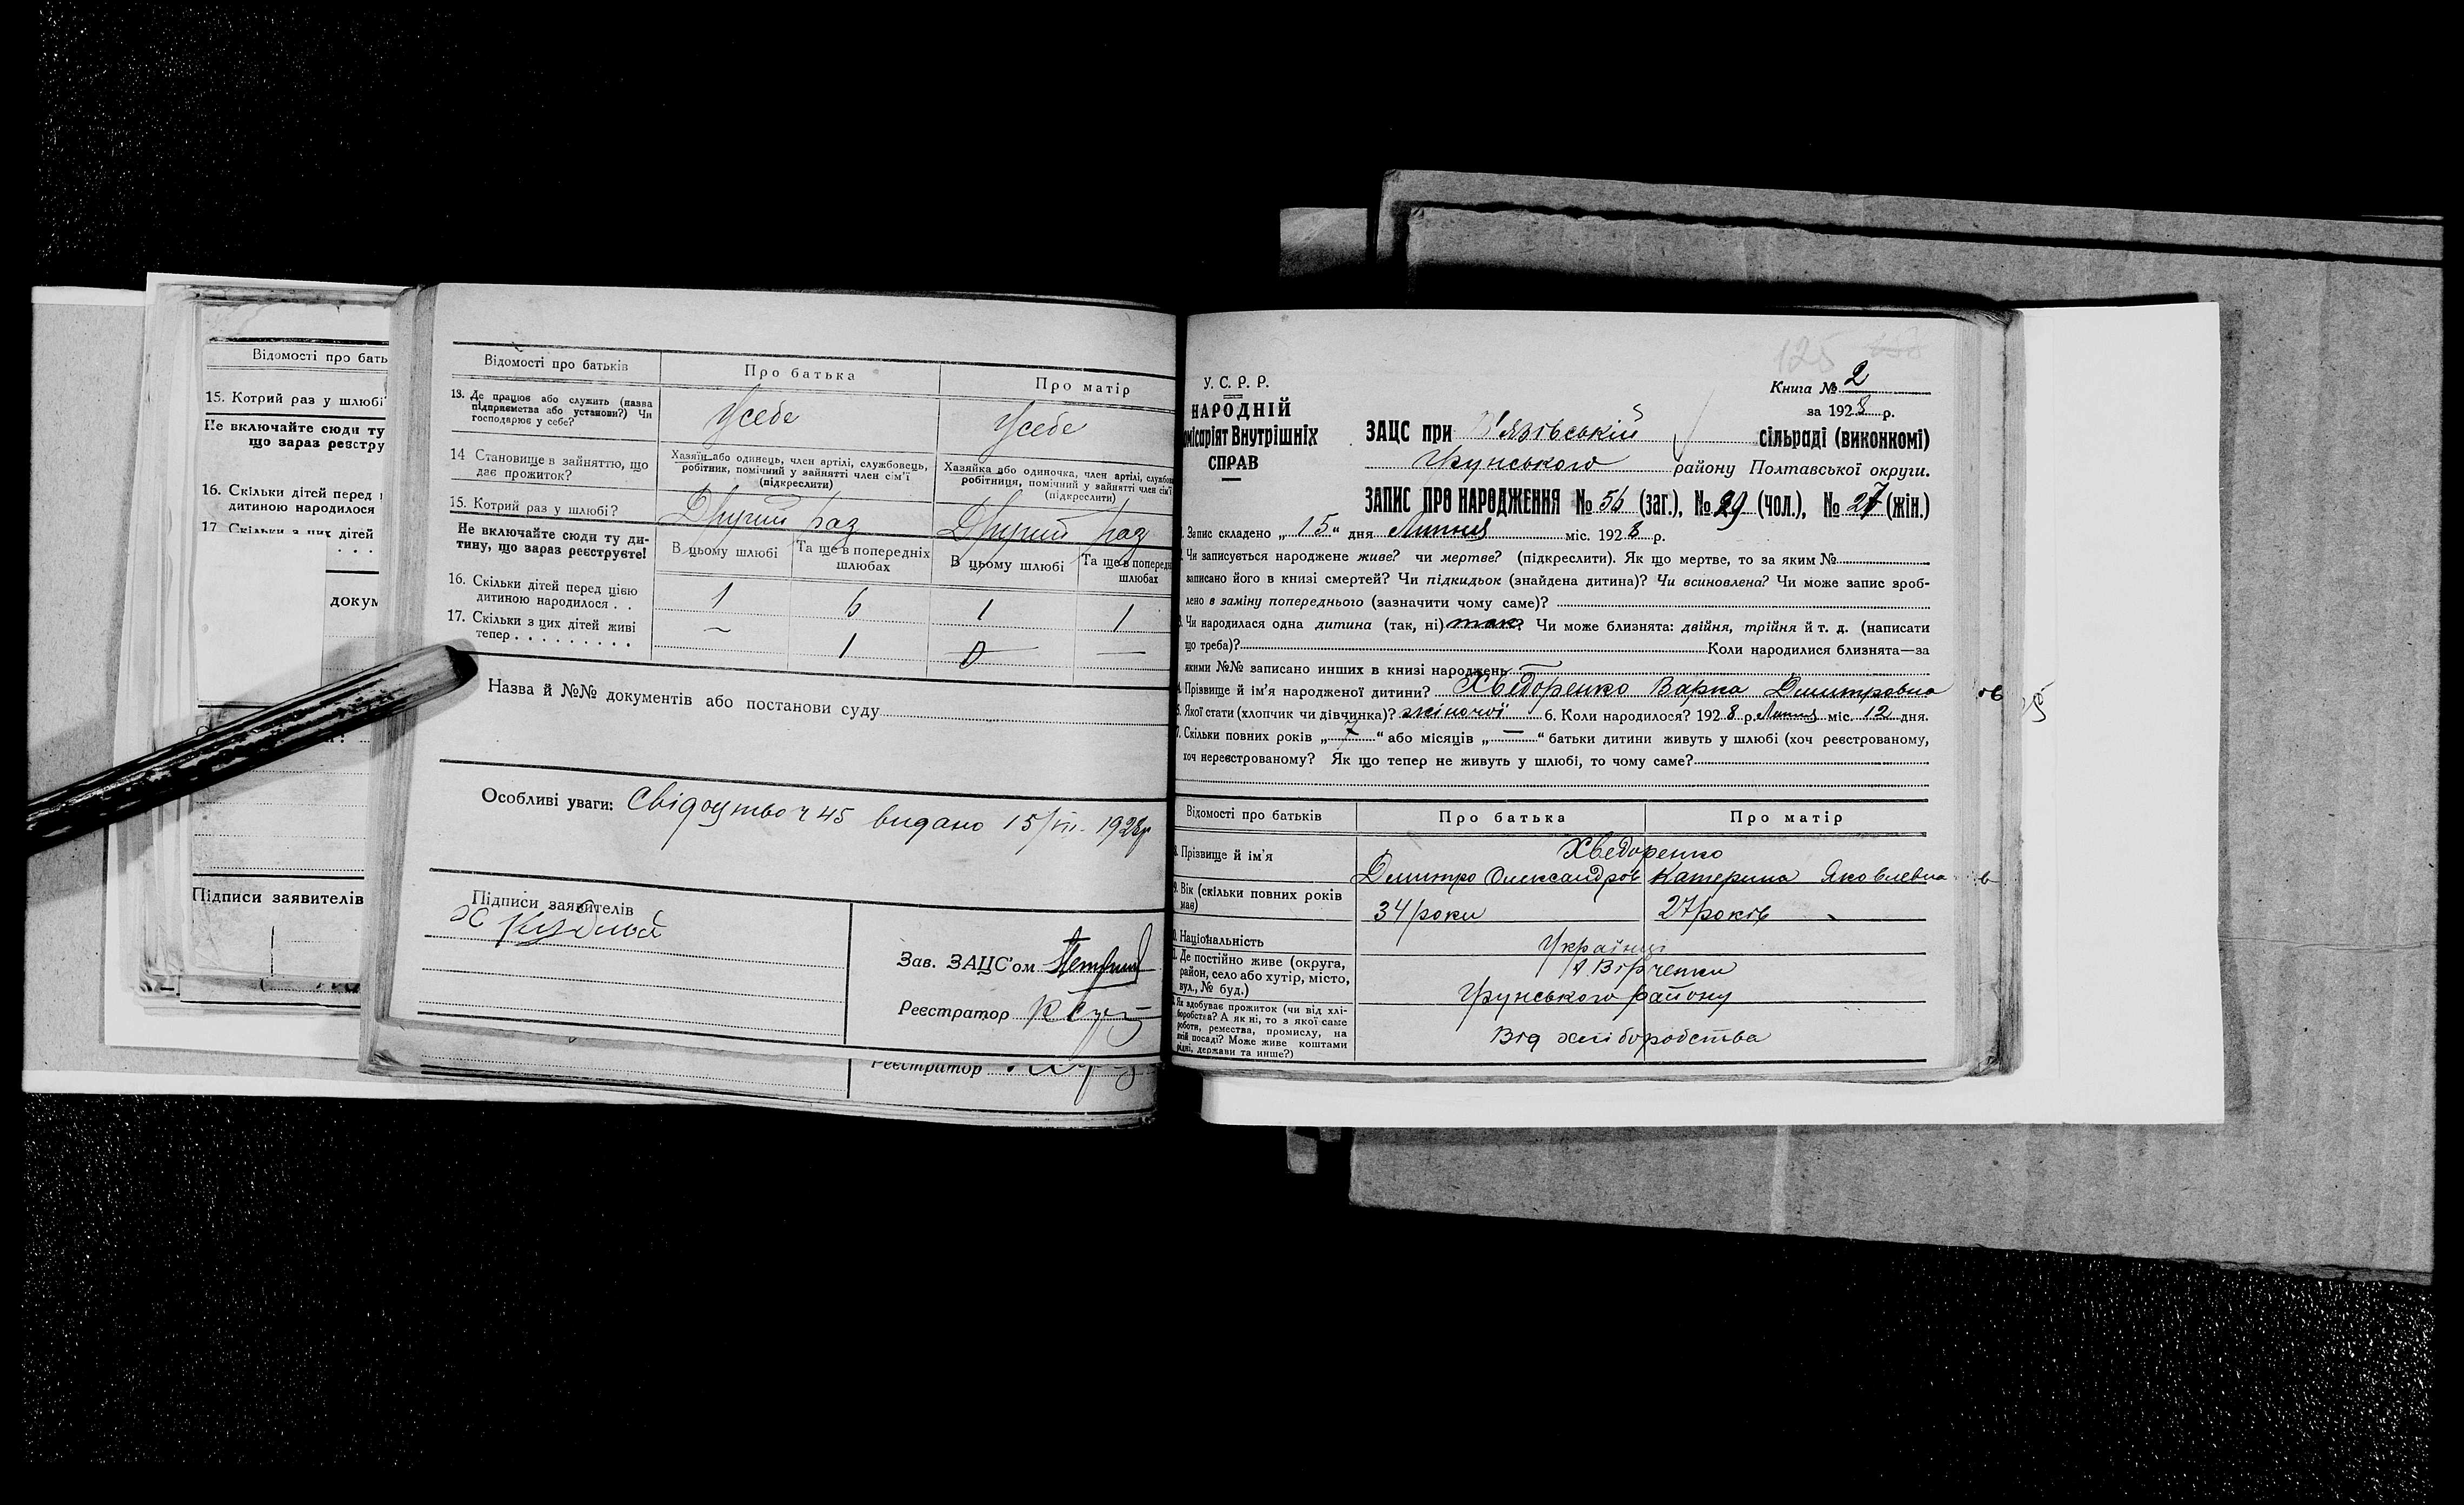 Відомості про бать
15. Котрий раз у шлюбі
Не включайте сюди ту
що зараз реєстру
16. Скільки дітей перед
дитиною народилося
17 Скільки з цих дітей
докум
Підписи заявителів
Відомості про батьків
Про батька
Про матір
13. Де працює або служить (назва
підприємства або установи?) Чи
господарює у себе?
Усебе
Усебе
14 Становище в зайняттю, що
дає прожиток?
Хазяїн або одинець, член артілі, службовець,
робітник, помічний у зайнятті член сім'ї
(підкреслити)
Хазяйка або одиночка, член артілі, службов
робітниця, помічний у зайнятті член сім'ї
(підкреслити)
15. Котрий раз у шлюбі?
Другий раз
Другий раз
Не включайте сюди ту ди-
тину, що зараз реєструєте!
В цьому шлюбі
Та ще в попередніх
шлюбах
В цьому шлюбі
Та ще в попередн
шлюбах
16. Скільки дітей перед цією
дитиною народилося . .
1 6 1 1
17. Скільки з цих дітей живі
тепер . . . . . . . . .
– 1 0 —
Назва й №№ документів або постанови суду
Особливі уваги: Свідоцтво ч 45 видано 15/VII- 1928р
Підписи заявителів
Зав. ЗАЦС'ом
Реєстратор
Реєстратор
125
У. С. Р. Р.
НАРОДНІЙ
місаріят Внутрішніх
СПРАВ
Книга № 2
за 1928 р.
ЗАЦС при В'язівській сільраді (виконкомі)
Грунського району Полтавської округи.
ЗАПИС ПРО НАРОДЖЕННЯ № 56 (заг.), № 29 (чол.), № 27 (жін.)
Запис складено „15" дня Липня міс. 1928 р.
Чи записується народжене живе? чи мертве? (підкреслити). Як що мертве, то за яким №
записано його в книзі смертей? Чи підкидьок (знайдена дитина)? Чи всиновлена? Чи може запис зроб-
лено в заміну попереднього (зазначити чому саме)?
Чи народилася одна дитина (так, ні) так? Чи може близнята: двійня, трійня й т. д. (написати
що треба)? Коли народилися близнята—за
якими №№ записано инших в книзі народжень
4. Прізвище й ім'я народженої дитини? Хведоренко Варка Дмитровна
5. Якої стати (хлопчик чи дівчинка)? жіночої 6. Коли народилося? 1928 р. Липня міс. 12 дня.
7. Скільки повних років „7" або місяців „—" батьки дитини живуть у шлюбі (хоч реєстрованому,
хоч нереєстрованому? Як що тепер не живуть у шлюбі, то чому саме?
Відомості про батьків
Про батька
Про матір
8. Прізвище й ім'я
Хведоренко
Дмитро Олександров Катерина Яковлевна
9. Вік (скільки повних років
має)
34 роки
27 років
Національність
Українці
Де постійно живе (округа,
район, село або хутір, місто,
вул., № буд.)
Грунського району
Як здобуває прожиток (чи від хлі-
боробства? А як ні, то з якої саме
роботи, ремества, промислу, на
якій посаді? Може живе коштами
рідні, держави та инше?)
Від хліборобства